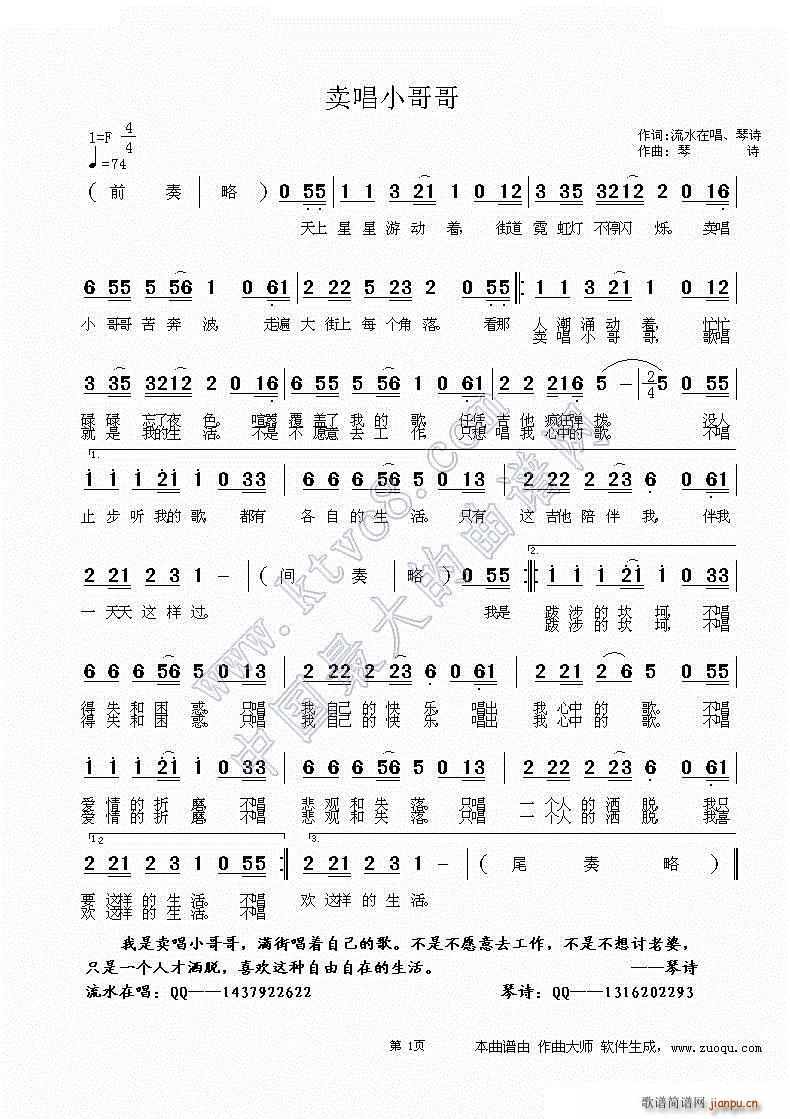 卖唱小哥哥
1=F 4/4
♩=74
作词:流水在唱、琴诗
作曲: 琴 诗
( 前 奏 | 略 ) 0 55 | 1 1 3 21 1 0 12 | 3 35 3212 2 0 16 |
天上 星 星 游 动 着, 街道 霓 虹灯 不停闪 烁。 卖唱
6 55 5 56 1 0 61 | 2 22 5 23 2 0 55 |: 1 1 3 21 1 0 12 |
小 哥哥 苦 奔 波, 走遍 大 街上 每 个 角 落。 看那 人 潮 涌 动 着, 忙忙
卖 唱 小 哥 哥, 歌唱
3 35 3212 2 0 16 | 6 55 5 56 1 0 61 | 2 22 216 5 - | 2/4 5 0 55 |
碌 碌 忘了夜 色。 喧嚣 覆 盖了 我 的 歌, 任凭 吉 他 疯狂弹 拨。 没人
就 是 我的生 活。 不是 不 愿意 去 工 作, 只想 唱 我 心中的 歌。 不唱
1.
1 1 1 21 1 0 33 | 6 6 6 56 5 0 13 | 2 22 2 23 6 0 61 |
止 步 听 我的 歌, 都有 各 自 的 生 活。 只有 这 吉他 陪 伴 我, 伴我
2 21 2 3 1 - | ( 间 奏 | 略 ) 0 55 :| 2. 1 1 1 21 1 0 33 |
一 天天 这 样 过。 我是 跋 涉 的 坎 坷, 不唱
跋 涉 的 坎 坷, 不唱
6 6 6 56 5 0 13 | 2 22 2 23 6 0 61 | 2 22 2 6 5 0 55 |
得 失 和 困 惑。 只唱 我 自己 的 快 乐, 唱出 我 心中 的 歌。 不唱
得 失 和 困 惑。 只唱 我 自己 的 快 乐, 唱出 我 心中 的 歌。 不唱
1 1 1 21 1 0 33 | 6 6 6 56 5 0 13 | 2 22 2 23 6 0 61 |
爱 情 的 折 磨, 不唱 悲 观 和 失 落。 只唱 一 个人 的 洒 脱, 我只
爱 情 的 折 磨, 不唱 悲 观 和 失 落。 只唱 一 个人 的 洒 脱, 我喜
1.2 3.
2 21 2 3 1 0 55 :| 2 21 2 3 1 - | ( 尾 奏 略 ) ‖
要 这样 的 生 活。 不唱 欢 这样 的 生 活。
欢 这样 的 生 活。 不唱
我是卖唱小哥哥，满街唱着自己的歌。不是不愿意去工作，不是不想讨老婆，
只是一个人才洒脱，喜欢这种自由自在的生活。 ——琴诗
流水在唱：QQ——1437922622 琴诗：QQ——1316202293
第 1页 本曲谱由 作曲大师 软件生成，www.zuoqu.com
www.ktvo8.com
中国最大的曲谱网
歌谱简谱网
jianpu.cn